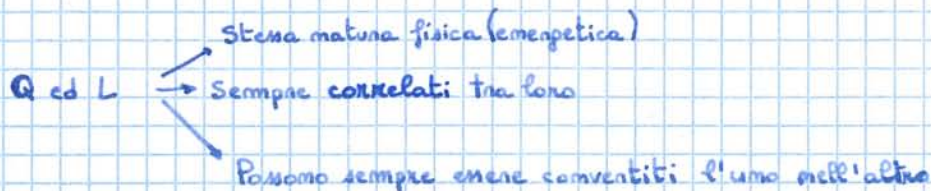 Stessa natura fisica (energetica)
Q ed L → Sempre correlati tra loro
Possono sempre essere convertiti l'uno nell'altro